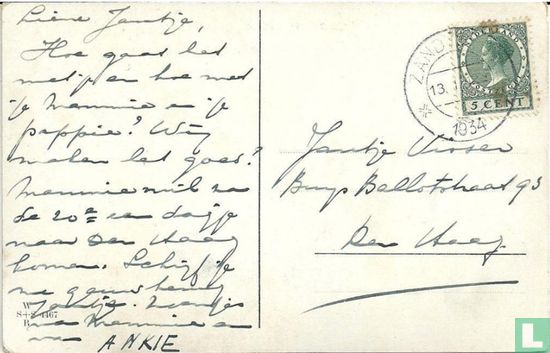 Lieve Jantje,
Hoe gaat het
met je en hoe met
je Mammie en je
pappie? Wij
maken het goed.
Mammie wil na
de 20e een dagje
naar Den Haag
komen. Schrijf je
me gauw
Jantje. Zoentjes
van Mammie en
van ANKIE
W
S+S 4467
B
NEDERLAND
5 CENT
ZAND
13.
1934
Jantje Visser
Buys Ballotstraat 93
Den Haag
catawiki